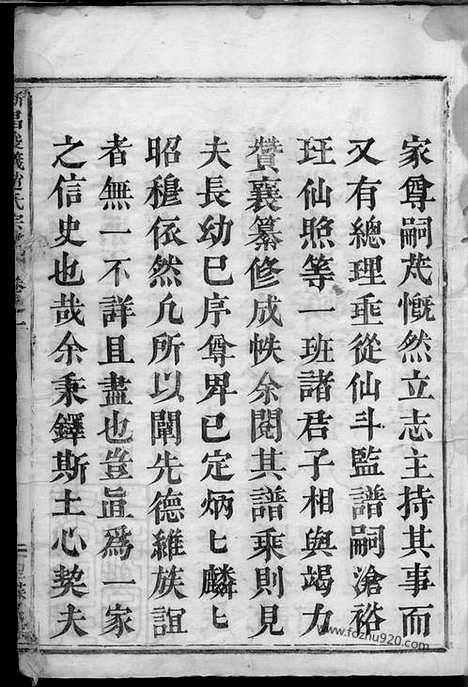 家尊嗣芃慨然立志主持其事而
又有總理乖從仙斗監譜嗣滄裕
玨仙照等一班諸君子相與竭力
贊襄纂修成帙余閱其譜乘則見
夫長幼已序尊畀已定炳匕麟匕
昭穆依然凢所以闡先德維族誼
者無一不詳且盡也豈眞為一家
之信史也哉余秉鐸斯土心契夫
www.fozhu920.com